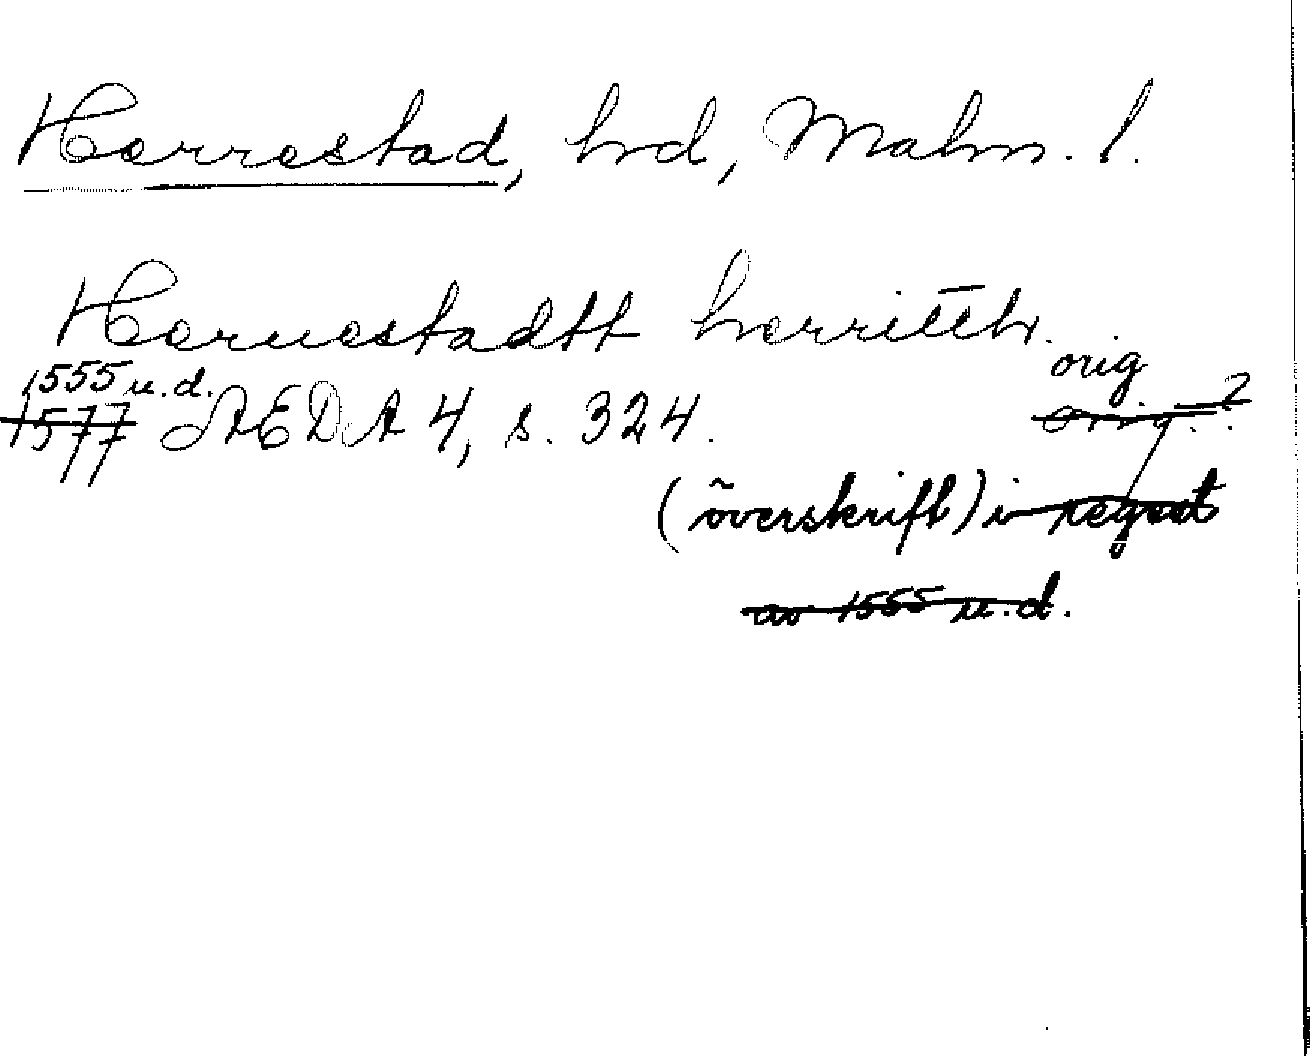 Herrestad, hrd, Malm. l.
Heruestadtt herritth. orig.
1555 u.d.
1577 ÄEDA 4, s. 324. orig.?
(överskrift) i regest
av 1555 u.d.